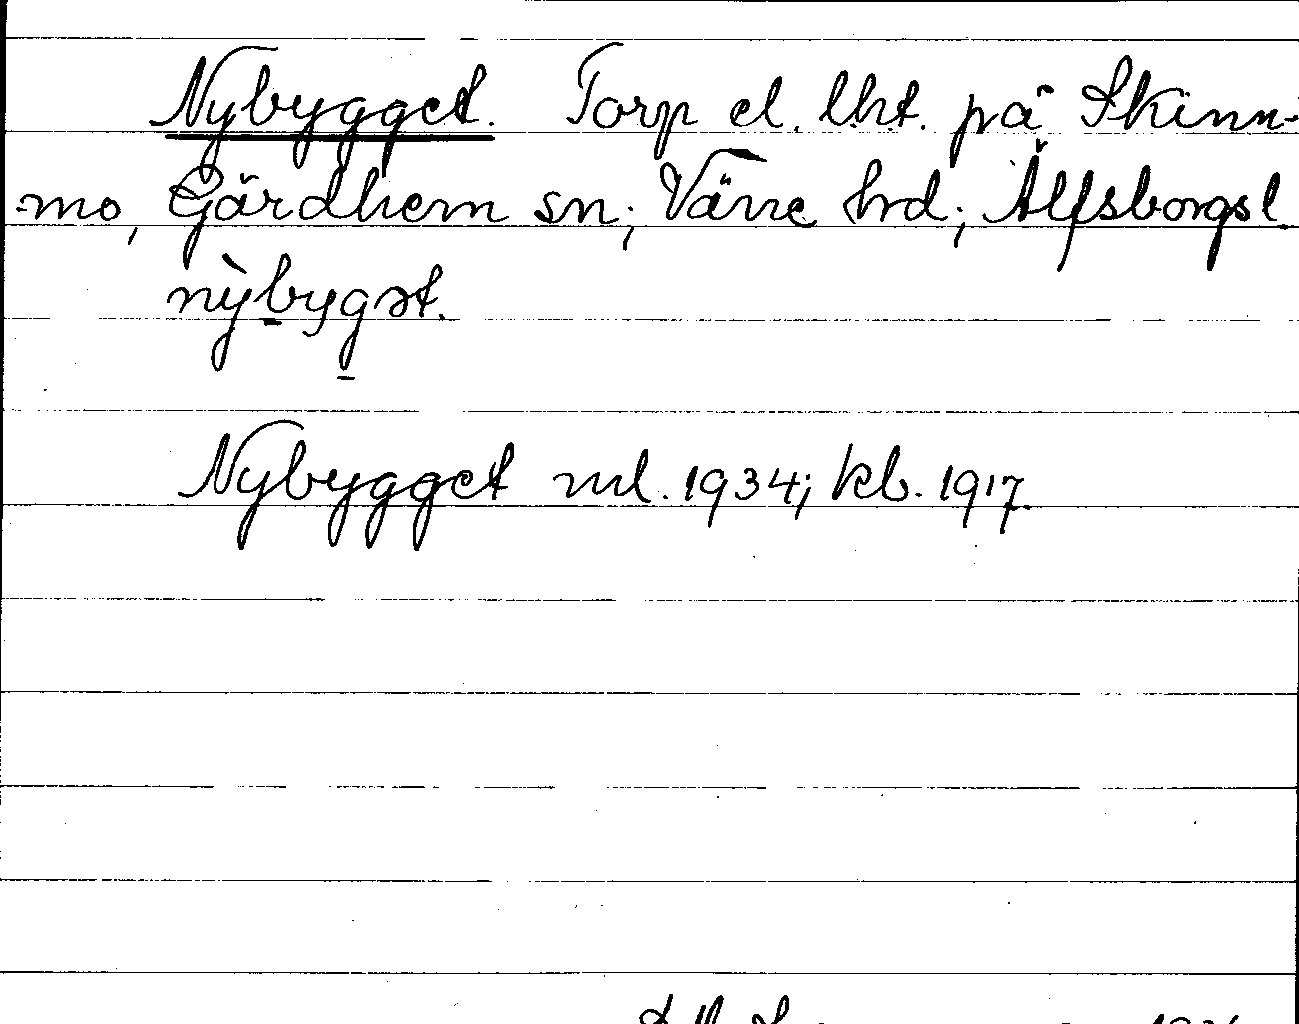 Nybygget. Torp el. lht. på Skinn-
mo, Gärdhem sn; Väne hrd; Älfsborgs l
nỳbygət.
Nybygget ml. 1934; kb. 1917.